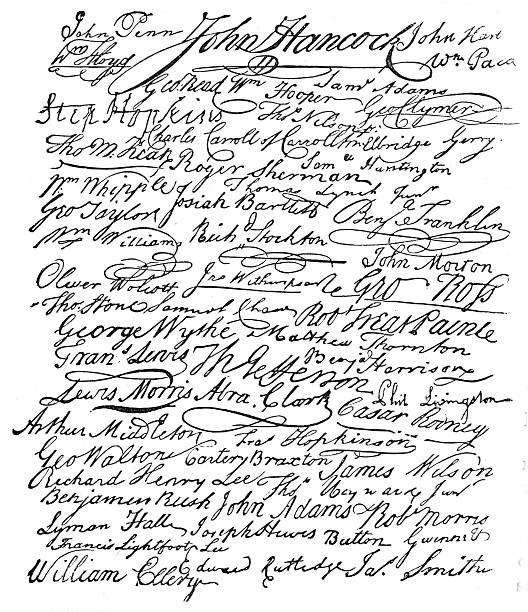 John Penn John Hancock John Hart
Wm Floyd Wm Paca
Geo Read Wm Hooper Saml Adams
Step Hopkins Thos Nelson jr. Geo Clymer
Charles Carroll of Carrollton Elbridge Gerry
Tho M. Kean Roger Sherman Saml Huntington
Wm Whipple Thomas Lynch Junr
Geo Taylor Josiah Bartlett Benj Franklin
Wm Williams Richd Stockton
John Morton
Oliver Wolcott Jno Witherspoon Geo Ross
Thos Stone Samuel Chase Robt Treat Paine
George Wythe Matthew Thornton
Frans Lewis Th Jefferson Benj Harrison
Lewis Morris Abra Clark Phil Livingston
Cæsar Rodney
Arthur Middleton Fras Hopkinson
Geo Walton Carter Braxton James Wilson
Richard Henry Lee Thos Heyward Junr
Benjamin Rush John Adams Robt Morris
Lyman Hall Joseph Hewes Button Gwinnett
Francis Lightfoot Lee
William Ellery Edward Rutledge Jas. Smith